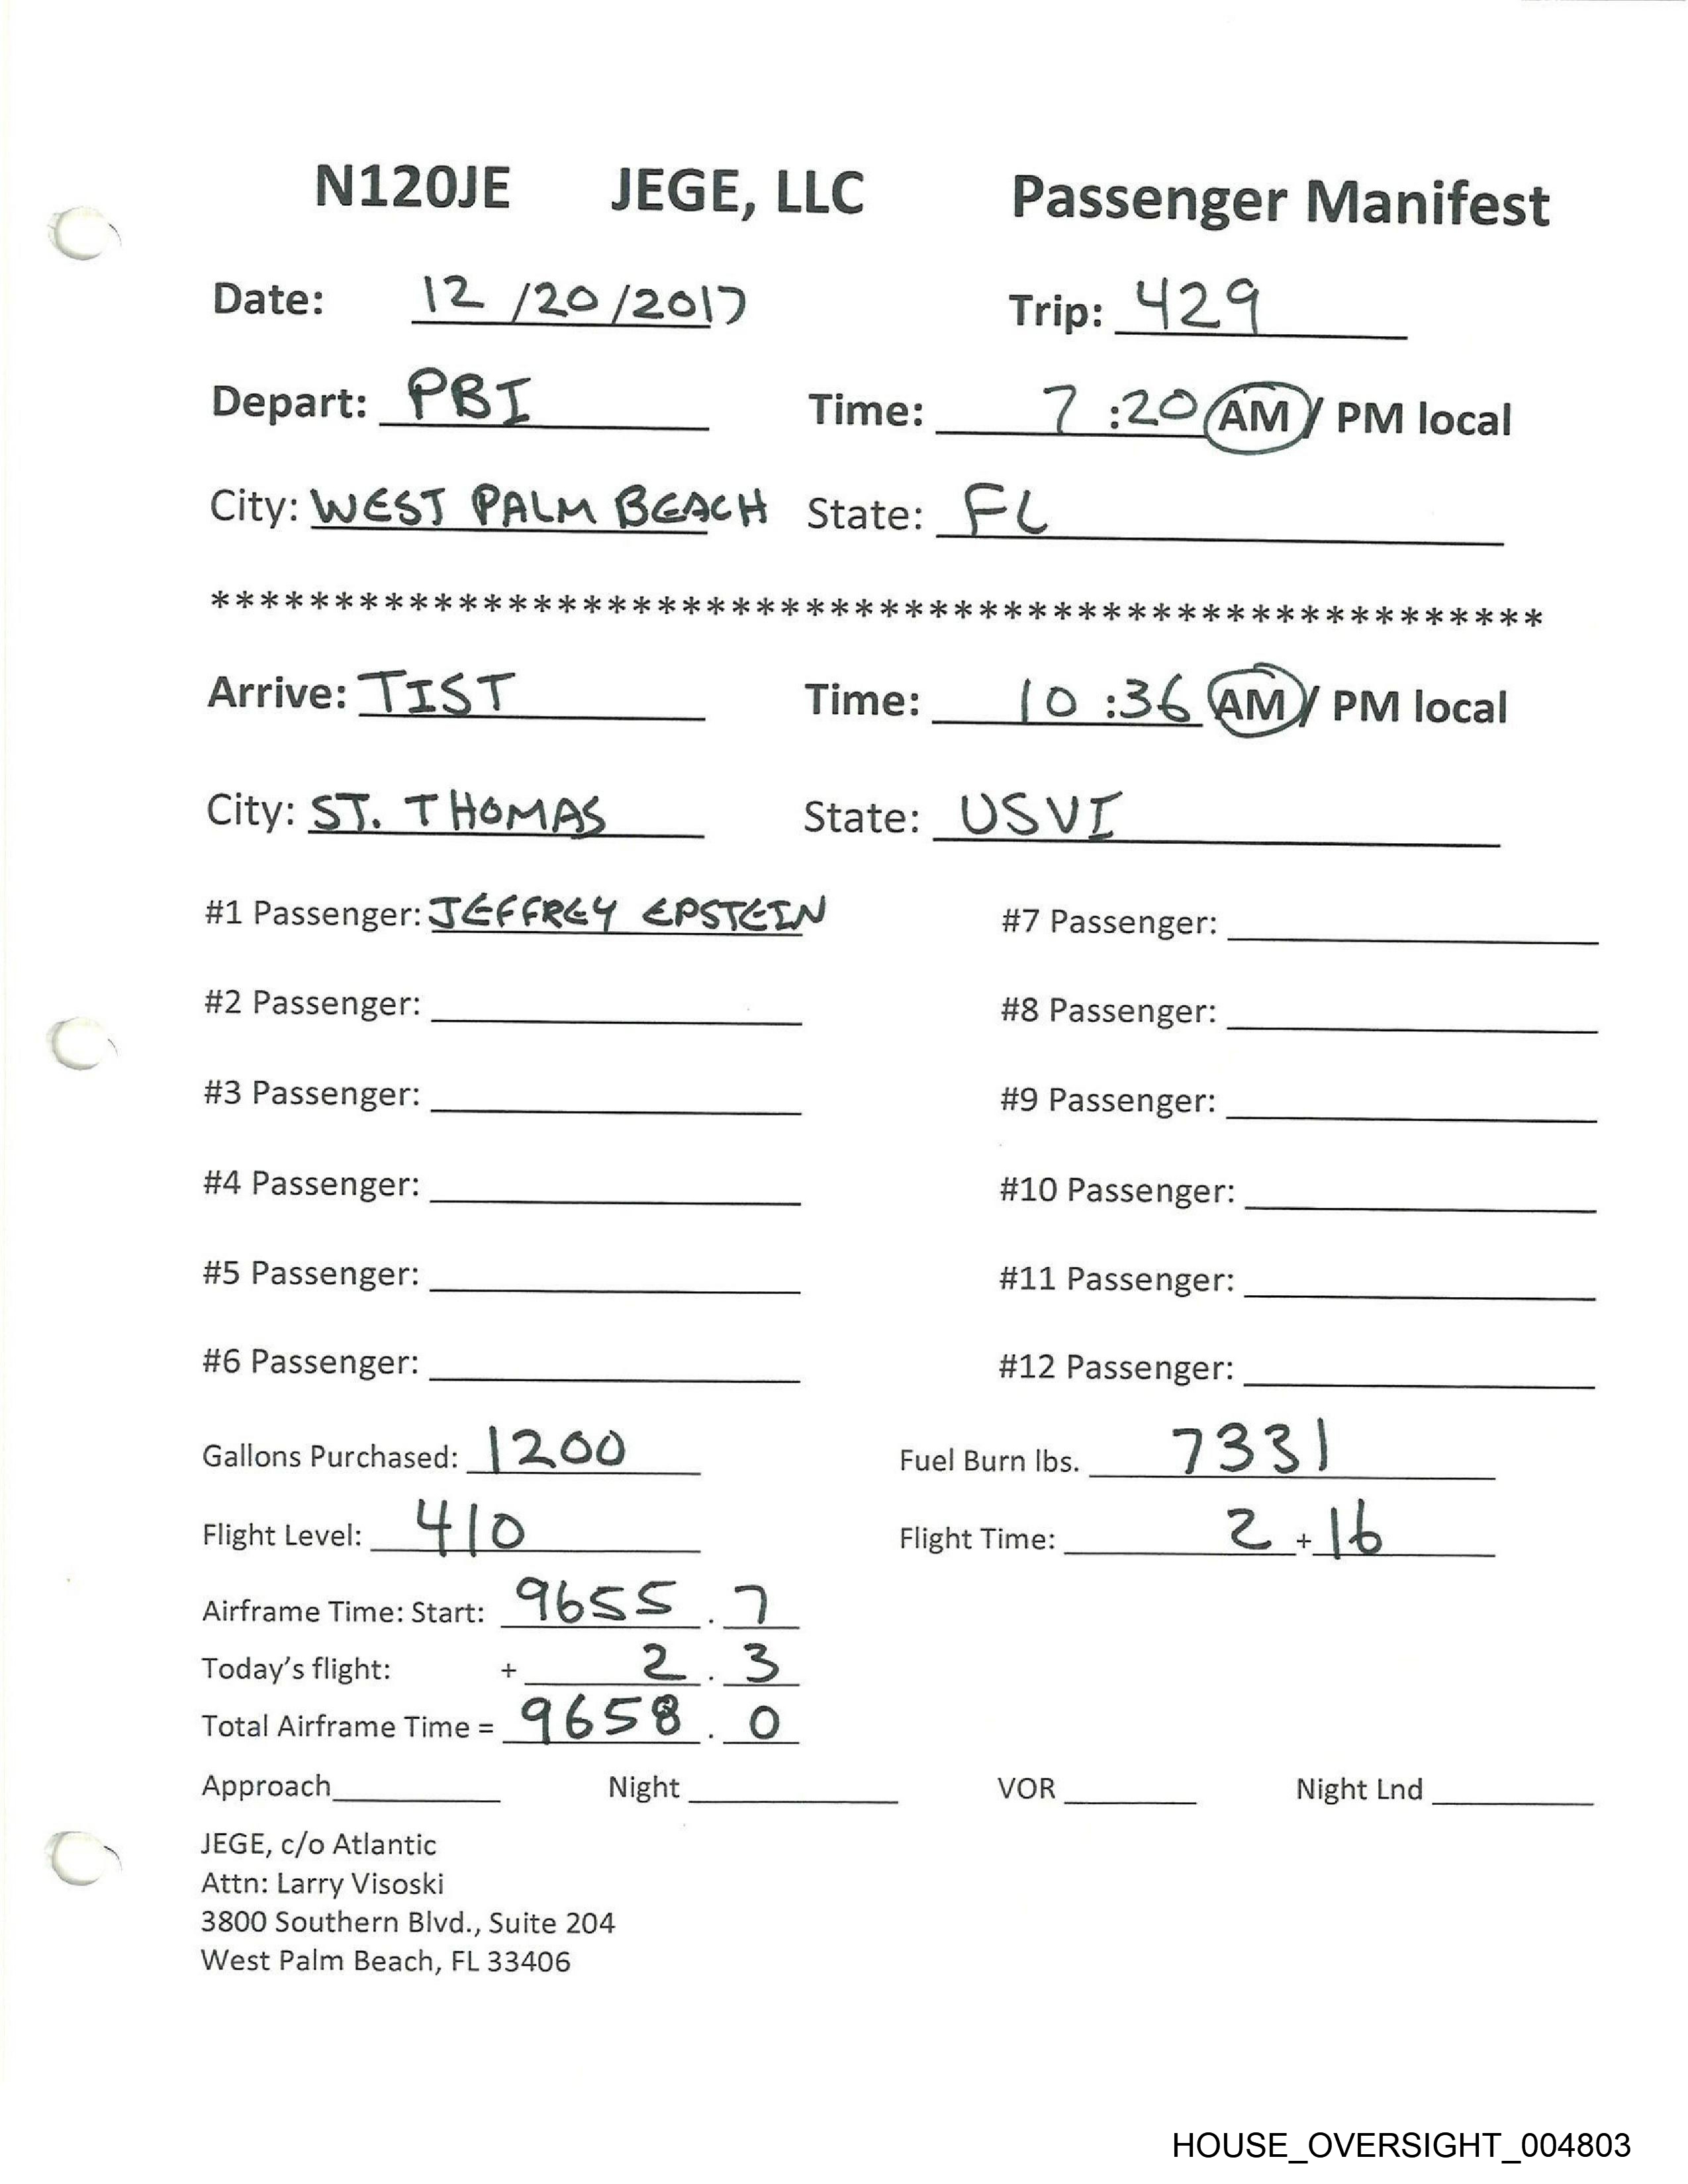 N120JE JEGE, LLC Passenger Manifest
Date: 12 /20/2017 Trip: 429
Depart: PBI Time: 7 :20 AM / PM local
City: WEST PALM BEACH State: FL
******************************************************
Arrive: TIST Time: 10 :36 AM / PM local
City: ST. THOMAS State: USVI
#1 Passenger: JEFFREY EPSTEIN #7 Passenger:
#2 Passenger: #8 Passenger:
#3 Passenger: #9 Passenger:
#4 Passenger: #10 Passenger:
#5 Passenger: #11 Passenger:
#6 Passenger: #12 Passenger:
Gallons Purchased: 1200 Fuel Burn lbs. 7331
Flight Level: 410 Flight Time: 2 + 16
Airframe Time: Start: 9655 . 7
Today's flight: + 2 . 3
Total Airframe Time = 9658 . 0
Approach Night VOR Night Lnd
JEGE, c/o Atlantic
Attn: Larry Visoski
3800 Southern Blvd., Suite 204
West Palm Beach, FL 33406
HOUSE_OVERSIGHT_004803